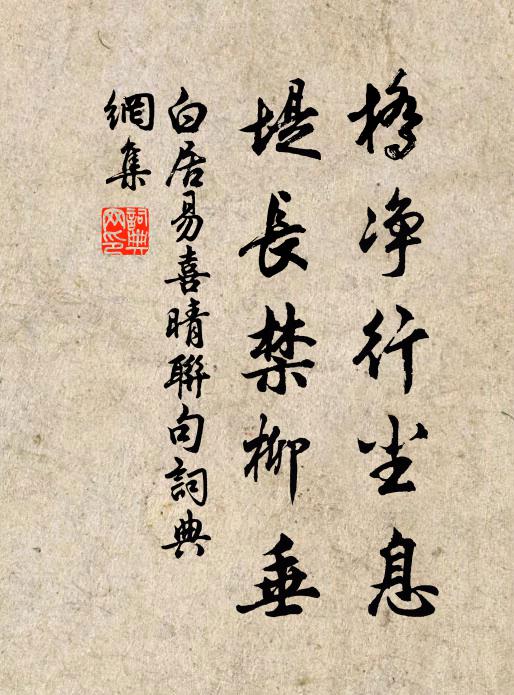 橋净行尘息
堤長禁柳垂
白居易喜晴聯句詞典
網集
詞典
网印